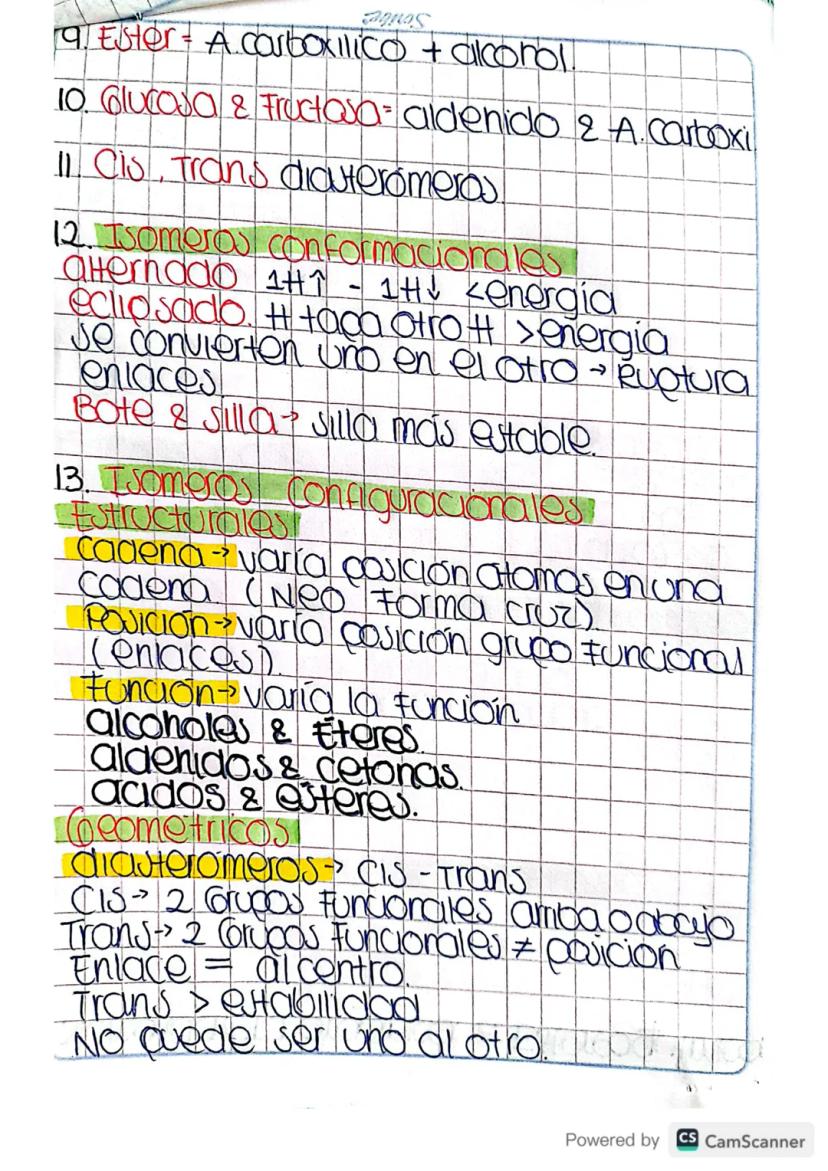 9. Ester = A.carboxilico + alcohol.
10. Glucosa & Fructosa = aldehido & A.carboxi
11. Cis, Trans diasterómeros
12. Isomeros conformacionales
alternado 1H↑ - 1H↓ <energía
eclipsado. H tapa otro H >energía
se convierten uno en el otro → Ruptura
enlaces.
Bote & silla → silla más estable.
13. Isomeros configuracionales
Estructurales
cadena → varía posición atomos en una
cadena. (Neo Forma cruz)
Posición → varía posición grupo funcional
(enlaces).
Función → varía la función
alcoholes & Éteres.
aldehidos & cetonas.
acidos & ésteres.
Geometricos
diasterómeros → Cis - Trans
Cis → 2 Grupos Funcionales arriba o abajo
Trans → 2 Grupos Funcionales ≠ posición
Enlace = al centro.
Trans > estabilidad
No puede ser uno al otro.
Powered by CS CamScanner